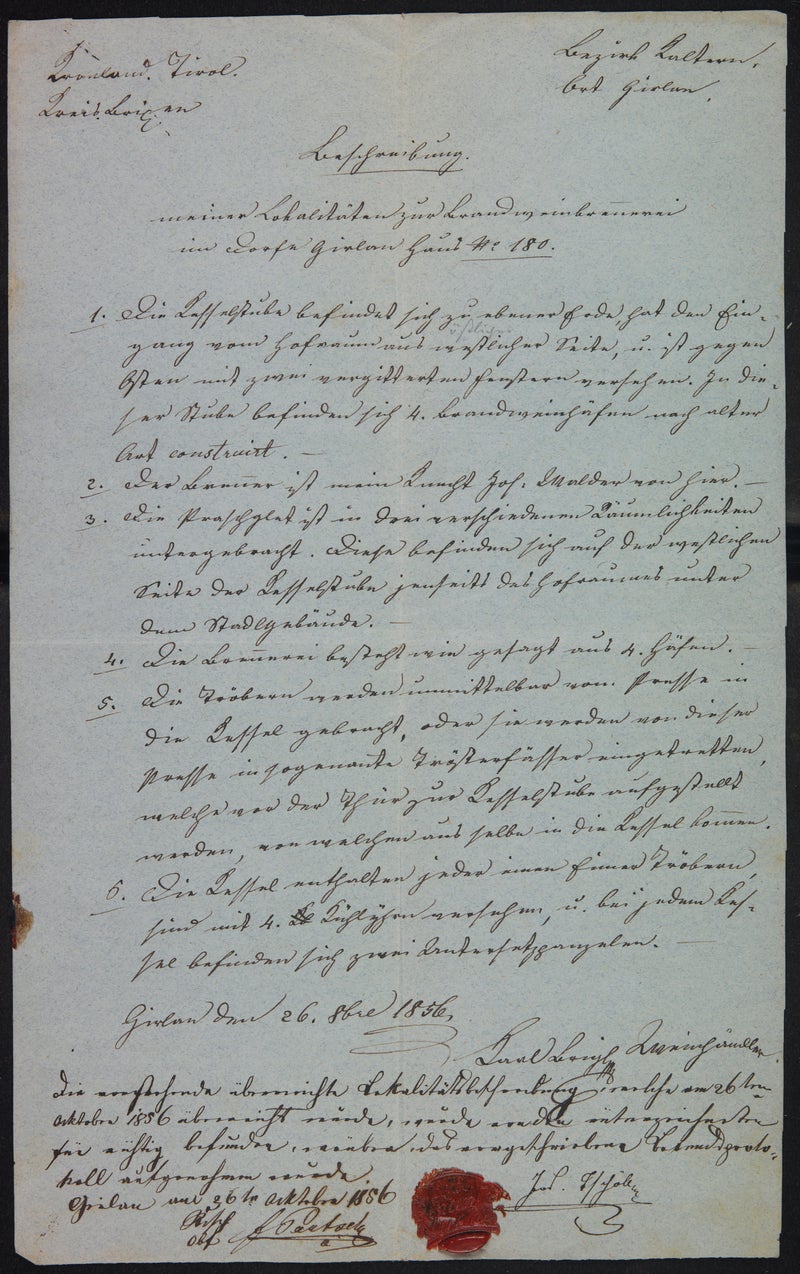 Kronland. Tirol.
Kreis. Brixen
Bezirk Kaltern.
Ort Girlan.
Beschreibung.
meiner Lokalitäten zur Brandweinbrennerei
im Dorfe Girlan Haus No 180.
1. Die Kesselstube befindet sich zu ebener Erde, hat den Ein-
östlicher
gang vom Hofraum aus westlicher Seite, u. ist gegen
Osten mit zwei vergitterten Fenstern versehen. In die-
ser Stube befinden sich 4. Brandweinhäfen nach alter
Art construirt. –
2. Der Brenner ist mein Knecht Jos: Walder von hier. –
3. Die Praschglet ist in drei verschiedenen Räumlichkeiten
untergebracht. Diese befinden sich auf der westlichen
Seite der Kesselstube jenseits des Hofraumes unter
dem Stadlgebäude. –
4. Die Brennerei besteht wie gesagt aus 4. Häfen. –
5. Die Tröbern werden unmittelbar vom Presse in
die Kessel gebracht, oder sie werden von dieser
Presse in sogenante Trösterfässer eingetretten,
welche vor der Thür zur Kesselstube aufgestellt
werden, von welchen aus selbe in die Kessel kommen.
6. Die Kessel enthalten jeder einen Eimer Tröbern,
sind mit 4. Kühlyhrn versehen, u. bei jedem Kes-
sel befinden sich zwei Untersetzpanzelen. –
Girlan den 26. 8bre 1856
Karl Brigl Weinhändler
Die vorstehende überreichte Lokalitätsbeschreibung, welche am 26ten
Oktober 1856 überreicht wurde, wurde von den unterzeichneten
für richtig befunden, worüber das vorgeschriebene Befundsproto-
koll aufgenohmen wurde.
Girlan am 26tn Oktober 1856
Jos. Tschöll